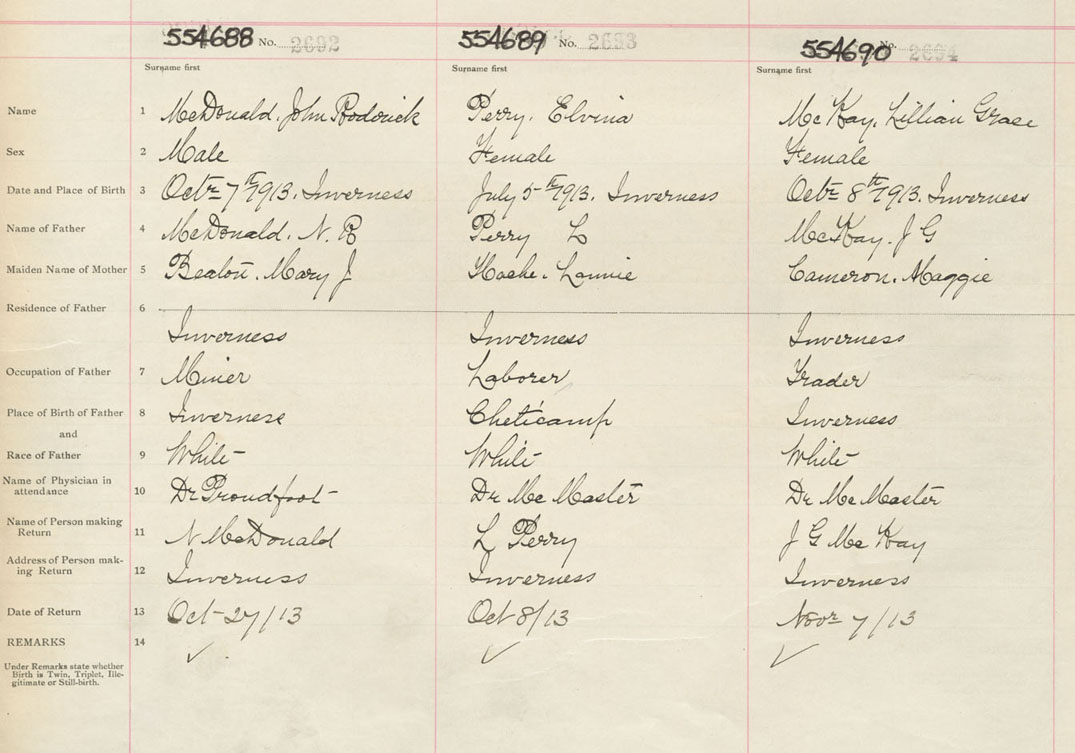 554688 No. 2692 554689 No. 2693 554690 No. 2694
Surname first Surname first Surname first
Name 1 McDonald, John Roderick Perry, Elvina McKay, Lillian Grace
Sex 2 Male Female Female
Date and Place of Birth 3 Octr 7th 1913. Inverness July 5th 1913. Inverness Octr 8th 1913. Inverness
Name of Father 4 McDonald. N. R Perry L McKay. J G
Maiden Name of Mother 5 Beaton. Mary J Cameron. Maggie
Residence of Father 6
Inverness Inverness Inverness
Occupation of Father 7 Miner Laborer Trader
Place of Birth of Father 8 Inverness Cheticamp Inverness
and
Race of Father 9 White White White
Name of Physician in
attendance 10 Dr Proudfoot Dr McMaster Dr McMaster
Name of Person making
Return 11 N McDonald L Perry J G McKay
Address of Person mak-
ing Return 12 Inverness Inverness Inverness
Date of Return 13 Oct 27/13 Oct 8/13 Novr 7/13
REMARKS 14
Under Remarks state whether
Birth is Twin, Triplet, Ille-
gitimate or Still-birth.